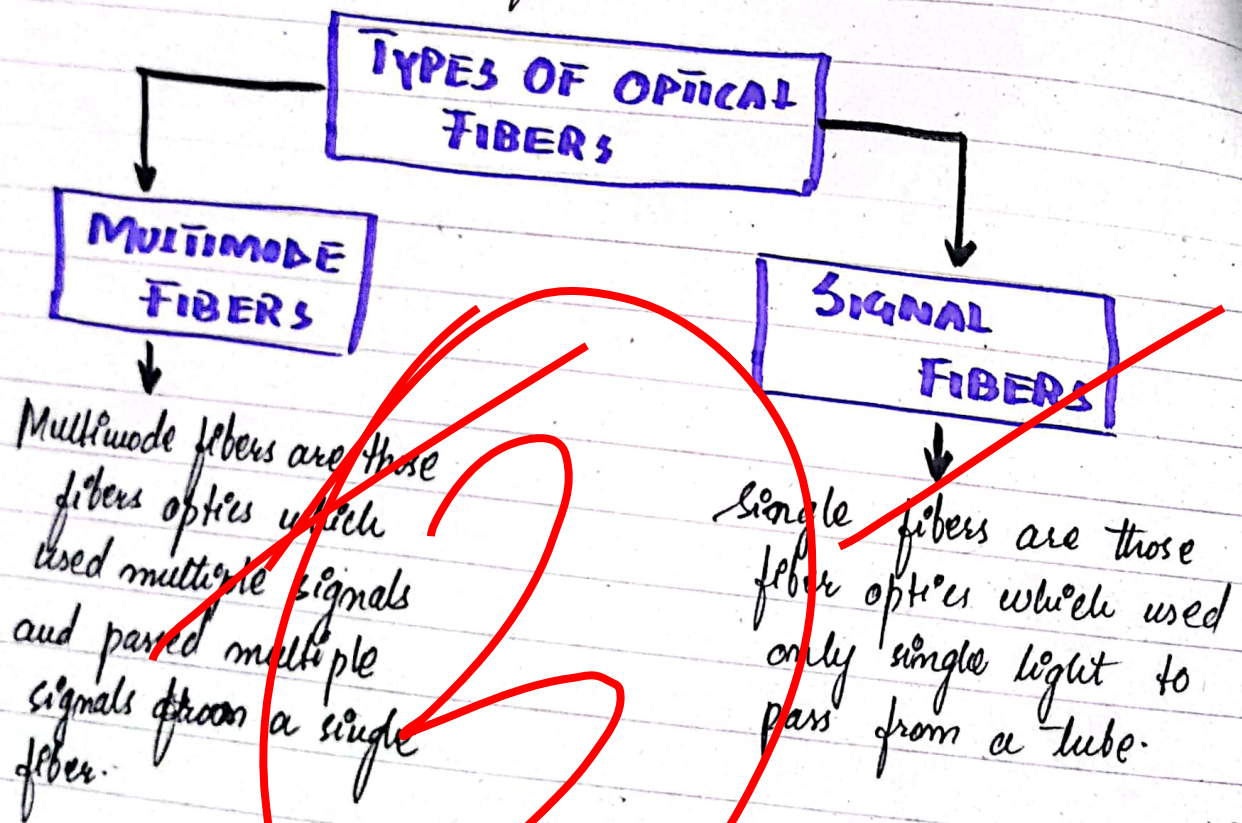 TYPES OF OPTICAL
FIBERS
MULTIMODE
FIBERS
SIGNAL
FIBERS
Multimode fibers are those
fibers optics which
used multiple signals
and passed multiple
signals from a single
fiber.
single fibers are those
fiber optics which used
only single light to
pass from a tube.
3